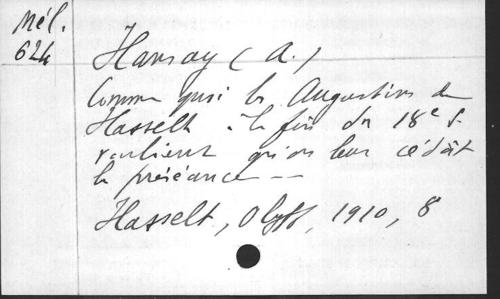 Mél.
624
Hansay (A.)
Comme quoi les Augustins de
Hasselt à la fin du 18e s.
voulaient qu'on leur cédât
la préséance --
Hasselt, Olyff, 1910, 8